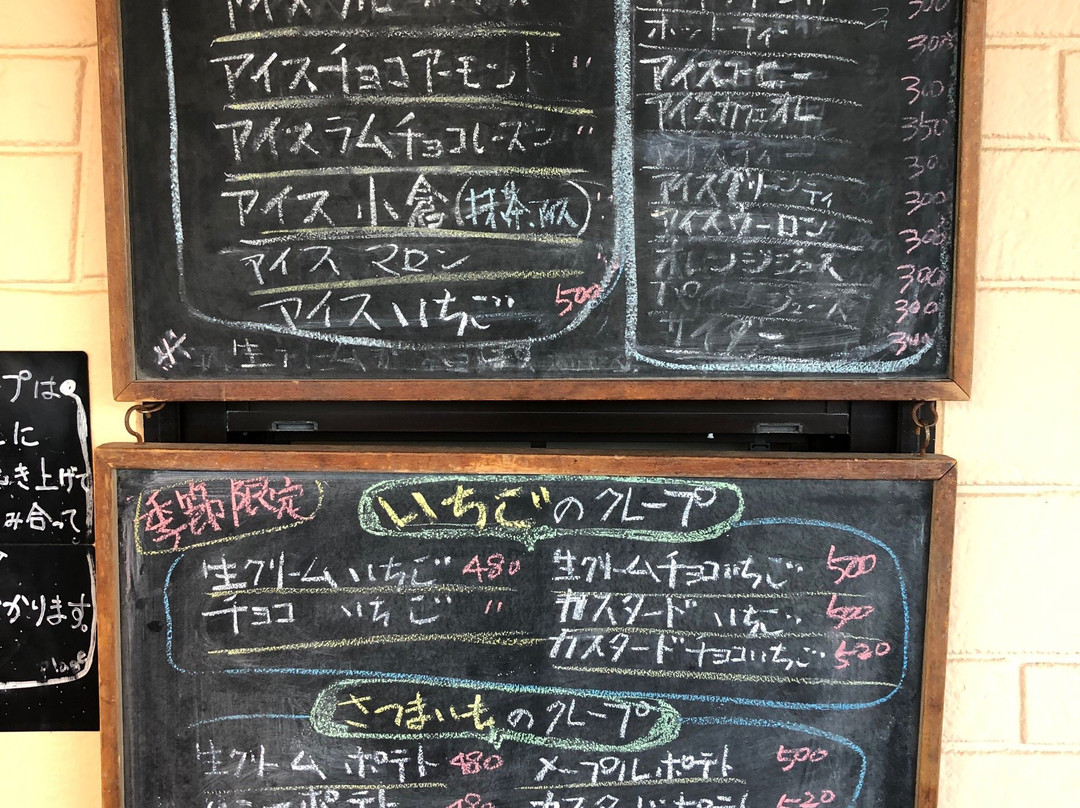 アイスチョコアーモンド 〃
アイスラムチョコレーズン 〃
アイス 小倉(抹茶アイス) 〃
アイス マロン 〃
アイス いちご 500
※ 生クリームが
350
ホットティー 300
アイスコーヒー 300
アイスカフェオレ 350
アイスティー 300
アイスグリーンティ 300
アイスウーロン 300
オレンジジュース 300
ジュース 300
サイダー 300
プは
に
き上げて
み合って
かります。
季節限定
いちごのクレープ
生クリームいちご 480
チョコ いちご 〃
生クリームチョコいちご 500
カスタード いちご 500
カスタードチョコいちご 520
さつまいものクレープ
生クリーム ポテト 480
ポテト 480
メープルポテト 500
カスタードポテト 520